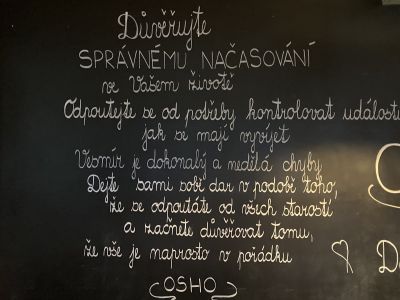 Důvěřujte
SPRÁVNÉMU NAČASOVÁNÍ
ve Vašem životě
Odpoutejte se od potřeby kontrolovat události
jak se mají vyvíjet
Vesmír je dokonalý a nedělá chyby
Dejte sami sobě dar v podobě toho,
že se odpoutáte od všech starostí
a začnete důvěřovat tomu,
že vše je naprosto v pořádku
OSHO